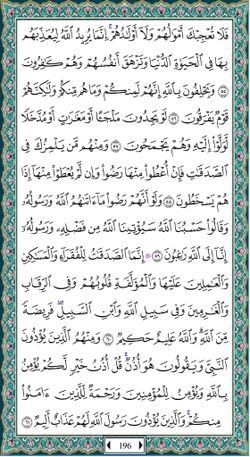 فَلَا تُعْجِبْكَ أَمْوَٰلُهُمْ وَلَآ أَوْلَٰدُهُمْ ۚ إِنَّمَا يُرِيدُ ٱللَّهُ لِيُعَذِّبَهُم
بِهَا فِي ٱلْحَيَوٰةِ ٱلدُّنْيَا وَتَزْهَقَ أَنفُسُهُمْ وَهُمْ كَٰفِرُونَ
٥٥ وَيَحْلِفُونَ بِٱللَّهِ إِنَّهُمْ لَمِنكُمْ وَمَا هُم مِّنكُمْ وَلَٰكِنَّهُمْ
قَوْمٌ يَفْرَقُونَ ٥٦ لَوْ يَجِدُونَ مَلْجَـًٔا أَوْ مَغَٰرَٰتٍ أَوْ مُدَّخَلًا
لَّوَلَّوْا۟ إِلَيْهِ وَهُمْ يَجْمَحُونَ ٥٧ وَمِنْهُم مَّن يَلْمِزُكَ فِي
ٱلصَّدَقَٰتِ فَإِنْ أُعْطُوا۟ مِنْهَا رَضُوا۟ وَإِن لَّمْ يُعْطَوْا۟ مِنْهَآ إِذَا
هُمْ يَسْخَطُونَ ٥٨ وَلَوْ أَنَّهُمْ رَضُوا۟ مَآ ءَاتَىٰهُمُ ٱللَّهُ وَرَسُولُهُۥ
وَقَالُوا۟ حَسْبُنَا ٱللَّهُ سَيُؤْتِينَا ٱللَّهُ مِن فَضْلِهِۦ وَرَسُولُهُۥٓ
إِنَّآ إِلَى ٱللَّهِ رَٰغِبُونَ ٥٩ ۞ إِنَّمَا ٱلصَّدَقَٰتُ لِلْفُقَرَآءِ وَٱلْمَسَٰكِينِ
وَٱلْعَٰمِلِينَ عَلَيْهَا وَٱلْمُؤَلَّفَةِ قُلُوبُهُمْ وَفِي ٱلرِّقَابِ
وَٱلْغَٰرِمِينَ وَفِي سَبِيلِ ٱللَّهِ وَٱبْنِ ٱلسَّبِيلِ ۖ فَرِيضَةً
مِّنَ ٱللَّهِ ۗ وَٱللَّهُ عَلِيمٌ حَكِيمٌ ٦٠ وَمِنْهُمُ ٱلَّذِينَ يُؤْذُونَ
ٱلنَّبِيَّ وَيَقُولُونَ هُوَ أُذُنٌ ۚ قُلْ أُذُنُ خَيْرٍ لَّكُمْ يُؤْمِنُ
بِٱللَّهِ وَيُؤْمِنُ لِلْمُؤْمِنِينَ وَرَحْمَةٌ لِّلَّذِينَ ءَامَنُوا۟
مِنكُمْ ۚ وَٱلَّذِينَ يُؤْذُونَ رَسُولَ ٱللَّهِ لَهُمْ عَذَابٌ أَلِيمٌ ٦١
196